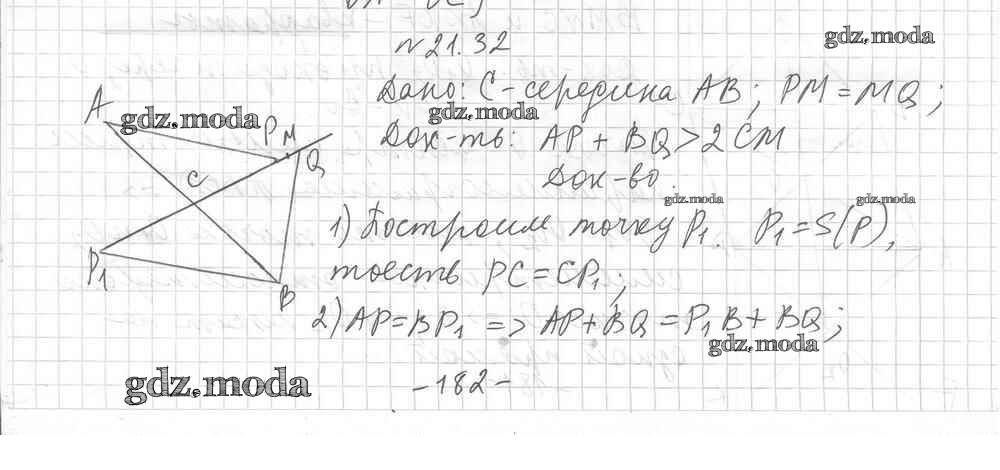 №21.32
gdz.moda
Дано: С-середина AB; PM=MQ;
gdz.moda
gdz.moda
Док-ть: AP+BQ>2CM
Док-во.
A
P
M
Q
C
P₁
B
gdz.moda
gdz.moda
1) Построим точку P₁. P₁=S(P),
тоесть PC=CP₁;
2) AP=BP₁ => AP+BQ=P₁B+BQ;
gdz.moda
gdz.moda
-182-